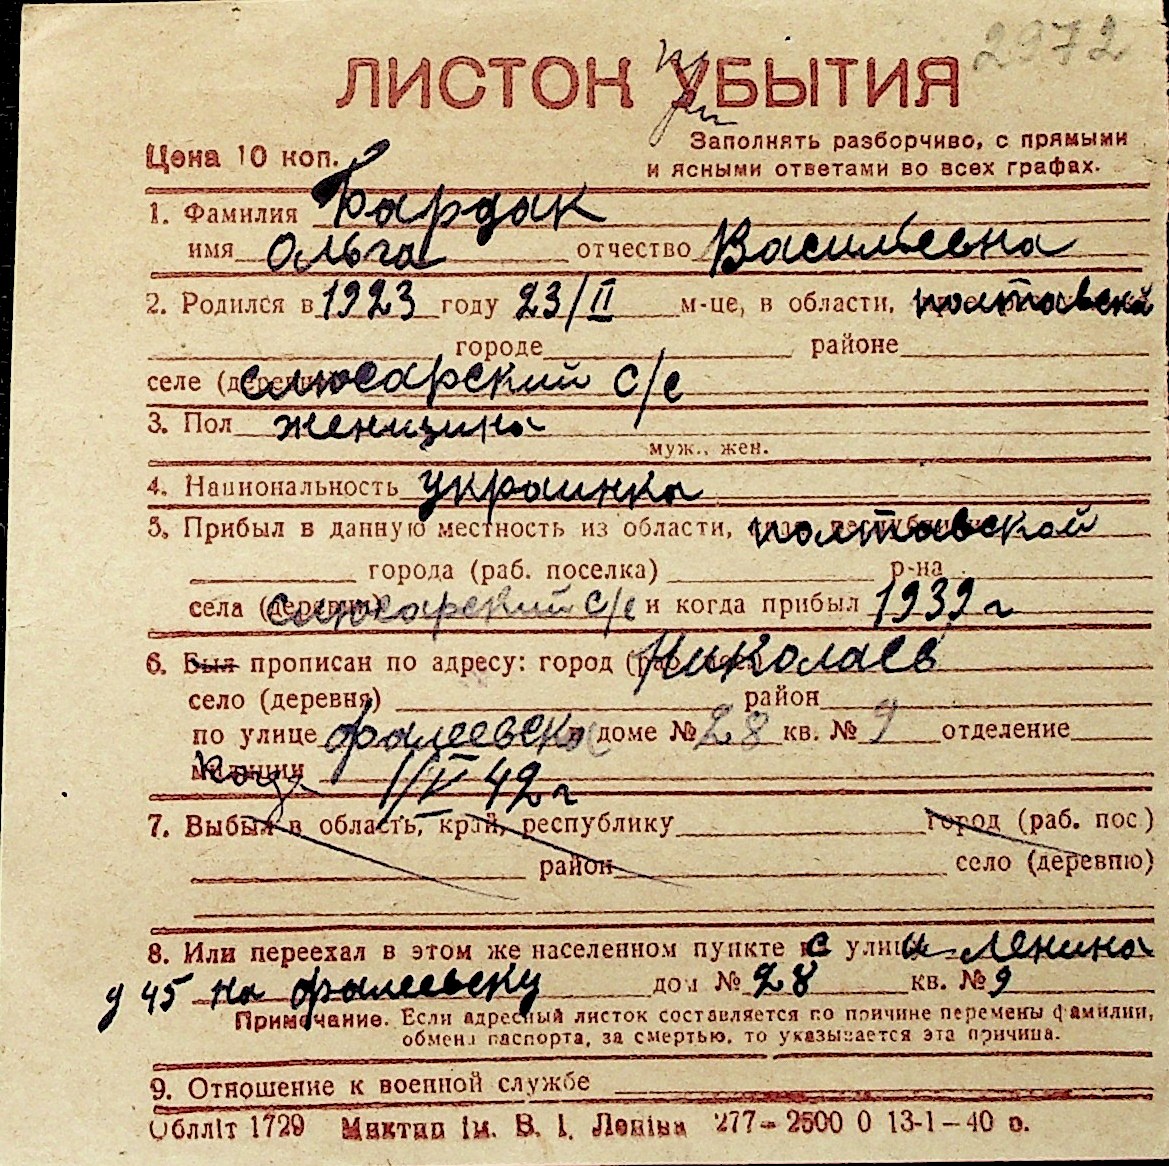 2972
ЛИСТОК УБЫТИЯ
Цена 10 коп.
Заполнять разборчиво, с прямыми
и ясными ответами во всех графах.
1. Фамилия Бардак
имя Ольга отчество Васильевна
2. Родился в 1923 году 23/II м-це, в области, полтавской
городе районе
селе (деревне) слюсарский с/с
3. Пол женщина
муж., жен.
4. Национальность украинка
5. Прибыл в данную местность из области, полтавской
города (раб. поселка) р-на
села (деревни) слюсарский с/с и когда прибыл 1939 г
6. Был прописан по адресу: город Николаев
село (деревня) район
по улице фалеевская доме № 28 кв. № 9 отделение
милиции 1/V 42 г
7. Выбыл в область, край, республику город (раб. пос.)
район село (деревню)
8. Или переехал в этом же населенном пункте с улицы Ленина
д 45 на фалеевску дом № 28 кв. № 9
Примечание. Если адресный листок составляется по причине перемены фамилии,
обмена паспорта, за смертью, то указывается эта причина.
9. Отношение к военной службе
Облліт 1729 Миктип ім. В. І. Леніна 277–2500 0 13-1–40 р.